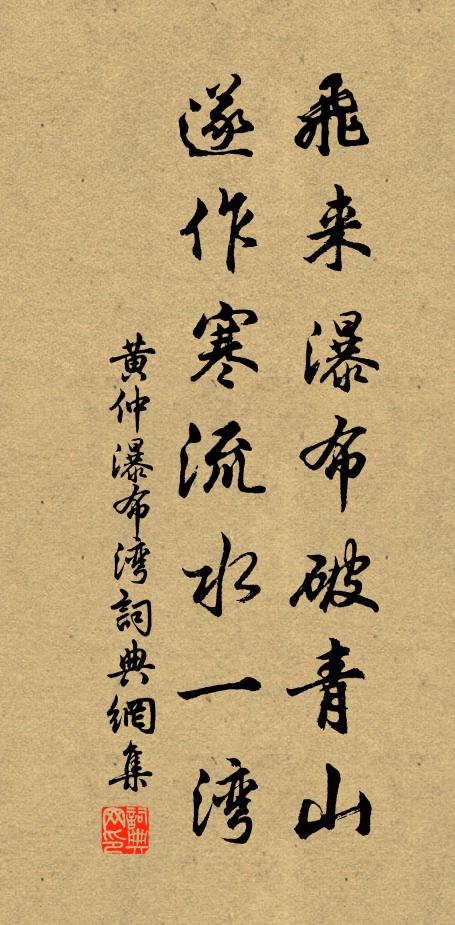 飛来瀑布破青山
遂作寒流水一湾
黄仲瀑布湾詞典網集
詞典网印